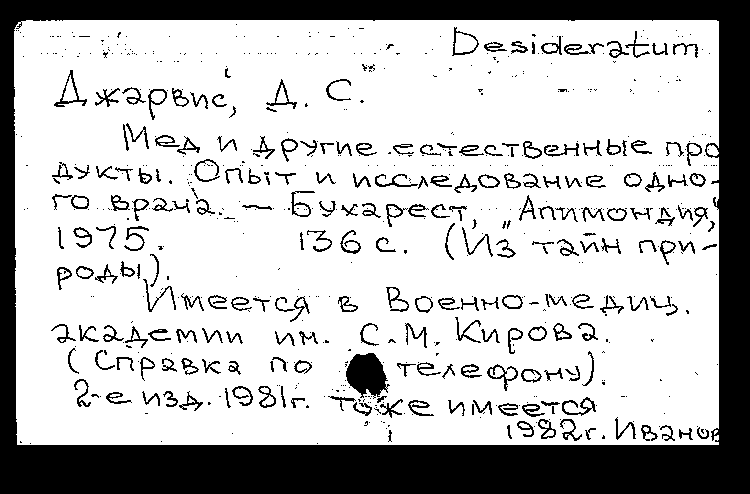 Desideratum
Джарвис, Д. С.
Мед и другие естественные про
дукты. Опыт и исследование одно-
го врача. — Бухарест, „Апимондия,"
1975. 136 с. (Из тайн при-
роды).
Имеется в Военно-медиц.
академии им. С.М. Кирова.
(Справка по телефону).
2-е изд. 1981г. тоже имеется
1982г. Иванов